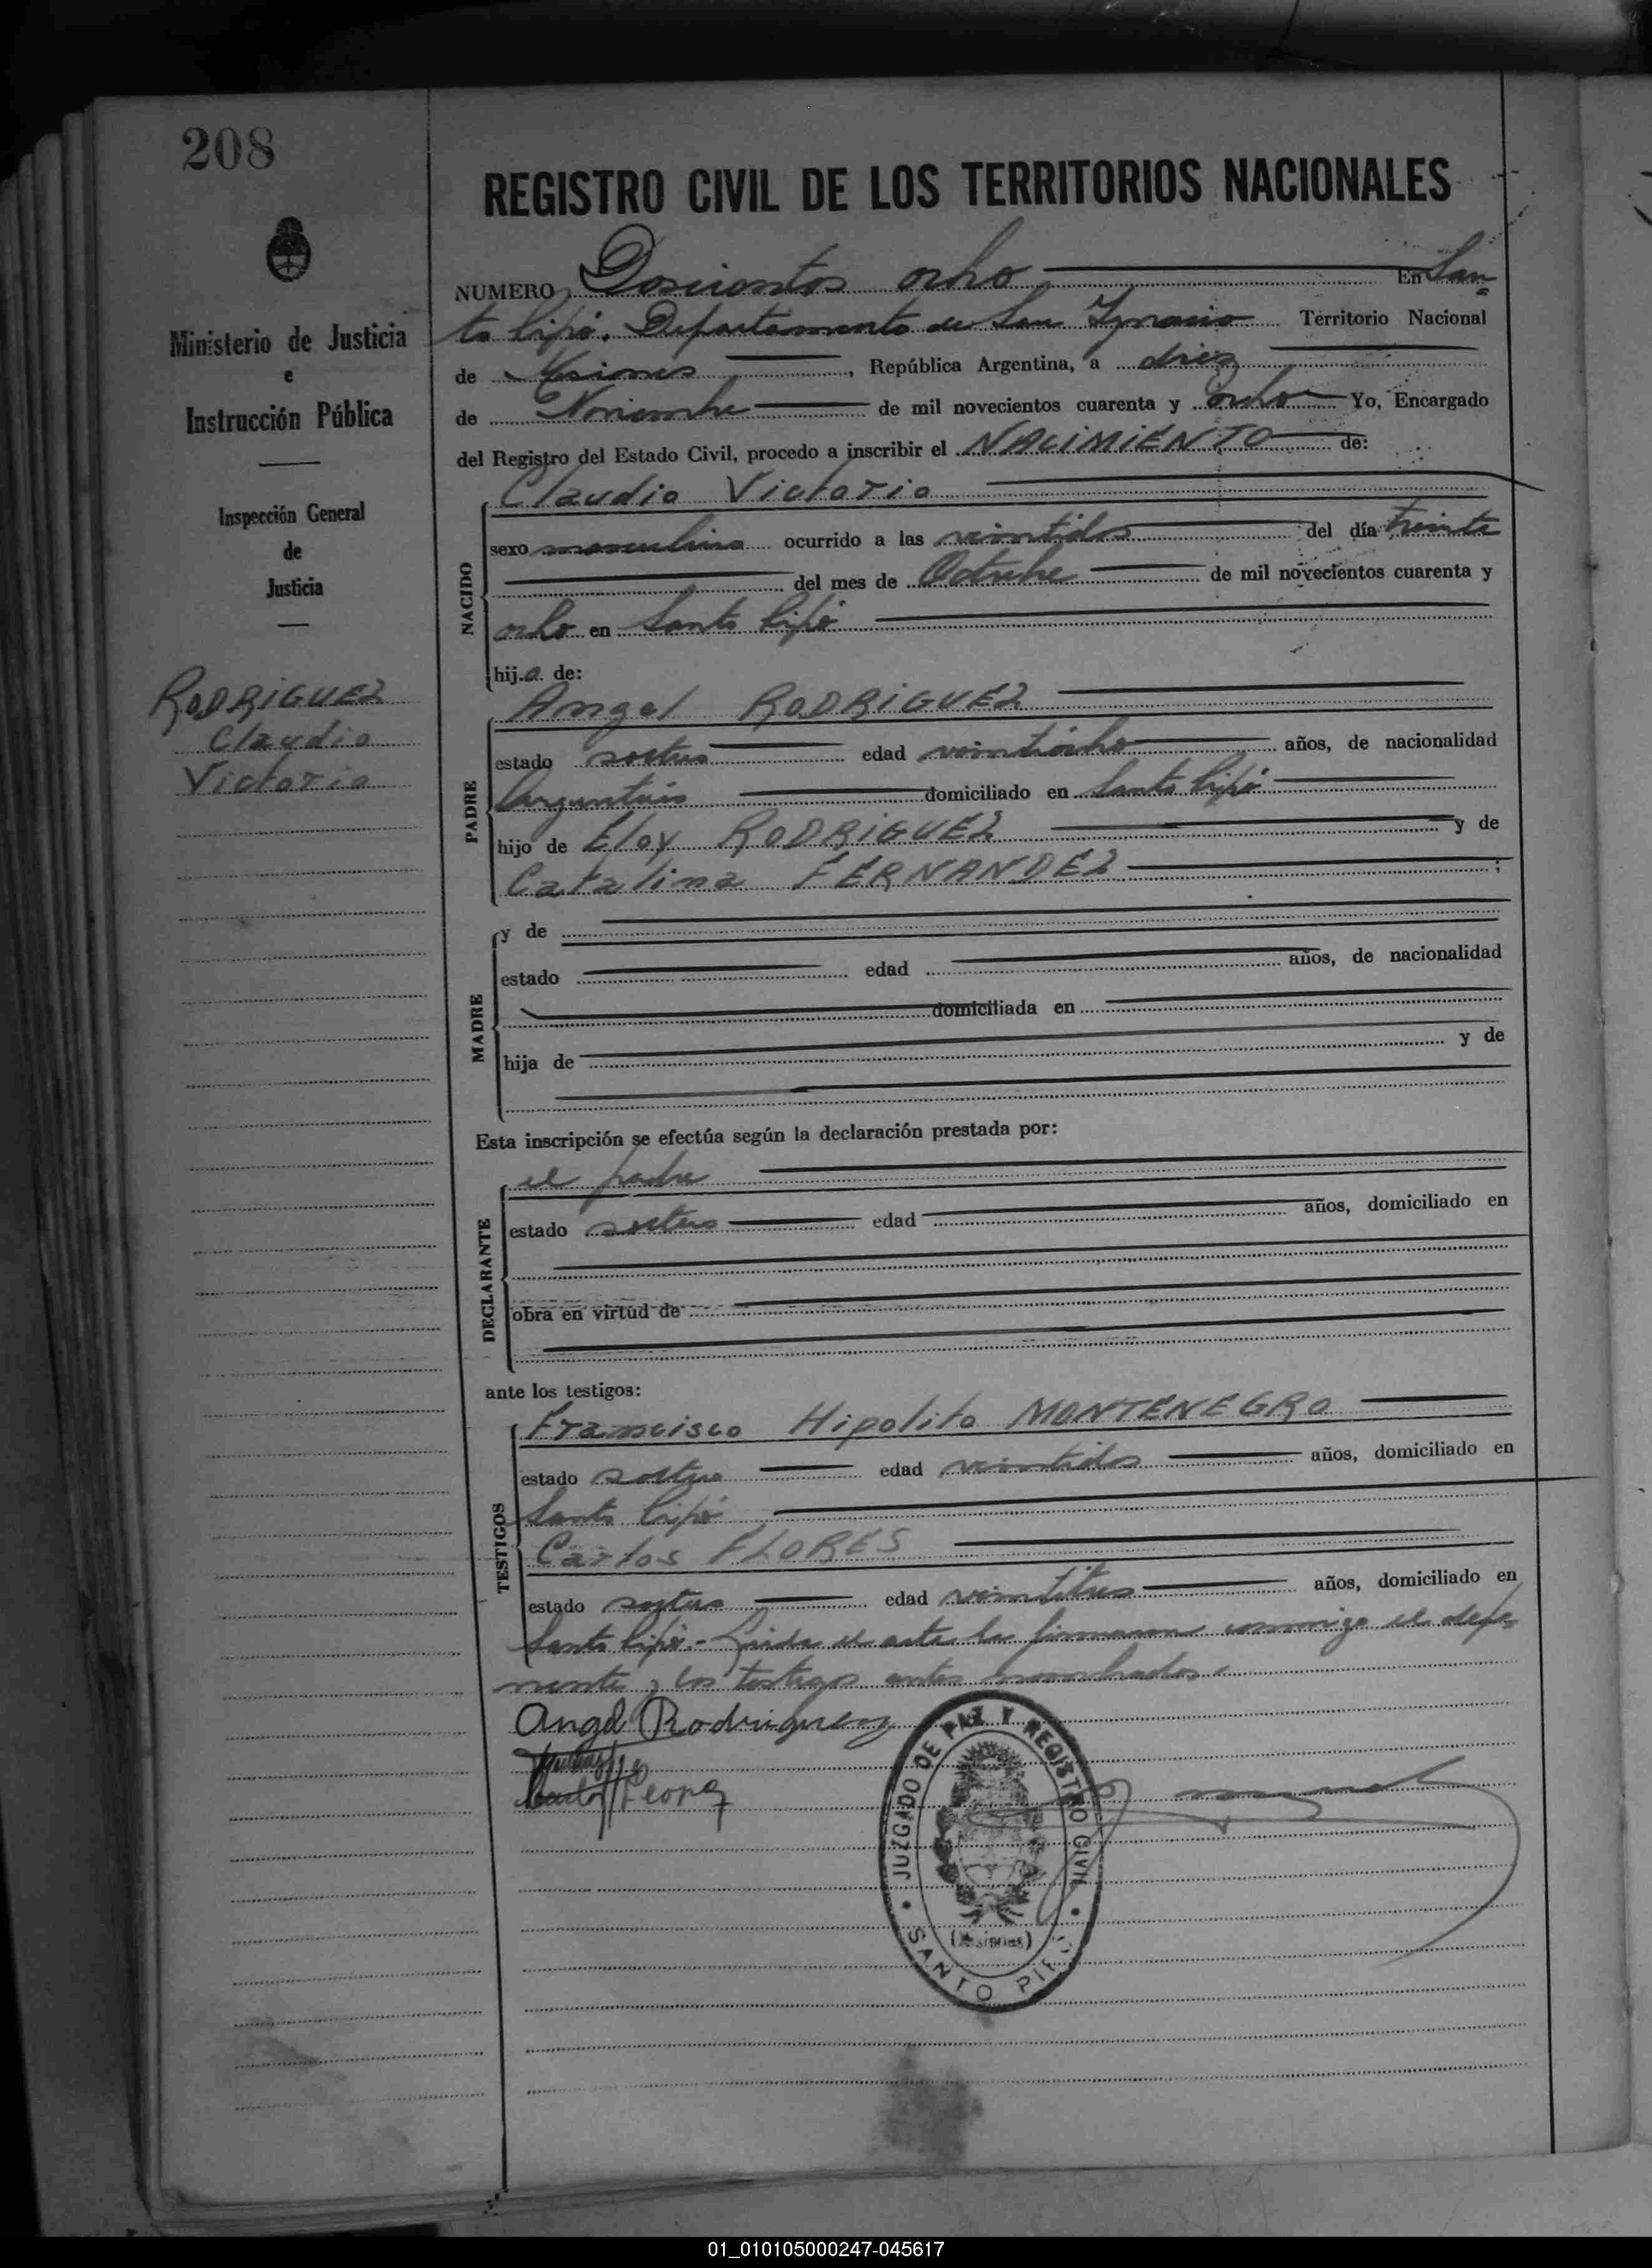 208
REGISTRO CIVIL DE LOS TERRITORIOS NACIONALES
Ministerio de Justicia
e
Instrucción Pública
Inspección General
de
Justicia
RODRiGUEZ
Claudio
Victorio
NUMERO Doscientos ocho En San-
to Pipó. Departamento de San Ignacio Territorio Nacional
de Misiones, República Argentina, a diez
de Noviembre de mil novecientos cuarenta y ocho Yo, Encargado
del Registro del Estado Civil, procedo a inscribir el NACiMiENTO de:
NACIDO
Claudio Victorio
sexo masculino ocurrido a las veintidos del día treinta
del mes de Octubre de mil novecientos cuarenta y
ocho en Santo Pipó
hij.o. de:
PADRE
Angel RODRiGUEZ
estado soltero edad veintiocho años, de nacionalidad
Argentino domiciliado en Santo Pipó
hijo de Eloy RODRiGUEZ y de
Catalina FERNANDEZ ;
MADRE
y de
estado edad años, de nacionalidad
domiciliada en
hija de y de
Esta inscripción se efectúa según la declaración prestada por:
DECLARANTE
el padre
estado soltero edad años, domiciliado en
obra en virtud de
ante los testigos:
TESTIGOS
Francisco Hipolito MONTENEGRO
estado soltero edad veintidos años, domiciliado en
Santo Pipó
Carlos FLORES
estado soltero edad veintitres años, domiciliado en
Santo Pipó.- Leida el acta la firmaron conmigo el depo-
nente y los testigos antes nombrados.
Angel Rodriguez
JUZGADO DE PAZ Y REGISTRO CIVIL
(Misiones)
SANTO PIPÓ
01_010105000247-045617